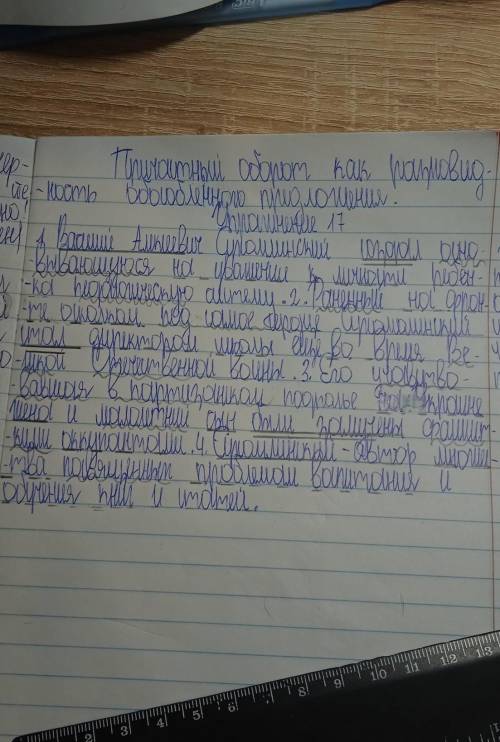 Причастный оборот как разновид-
-ность обособленного приложения.
Упражнение 17
1. Василий Сухомлинский создал осно-
-вывающуюся на уважении к личности ребён-
-ка педагогическую систему. 2. Раненный на фрон-
-те осколком под самое сердце Сухомлинский
стал директором школы ещё во время Ве-
-ликой Отечественной войны. 3. Его участво-
-вавшая в партизанском подполье на Украине
жена и малолетний сын были замучены фашист-
-кими оккупантами. 4. Сухомлинский - автор множес-
-тва посвящённых проблемам воспитания и
обучения книг и статей.